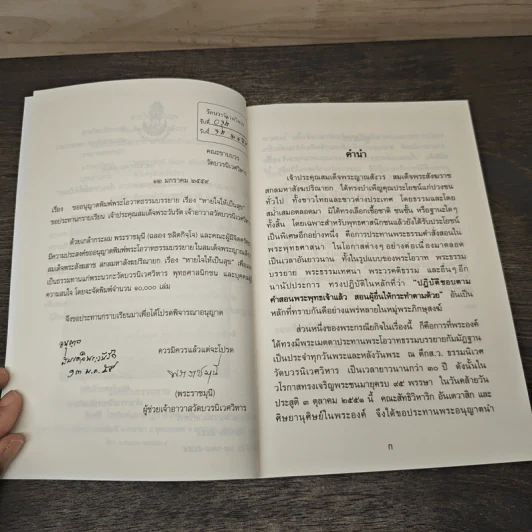 วัดบวรนิเวศวิหาร
คณะขาบบวร
วัดบวรนิเวศวิหาร
๑๒ มกราคม ๒๕๕๙
เรื่อง ขออนุญาตพิมพ์พระโอวาทธรรมบรรยาย เรื่อง "หายใจให้เป็นสุข"
ขอประทานกราบเรียน เจ้าประคุณสมเด็จพระวันรัต เจ้าอาวาสวัดบวรนิเวศวิหาร
ด้วยเกล้ากระผม พระราชมุนี (ฉลอง ชลิตกิจโจ) และคณะผู้มีจิตศรัทธา
มีความประสงค์ขออนุญาตพิมพ์พระโอวาทธรรมบรรยายในสมเด็จพระญาณสังวร
สมเด็จพระสังฆราช สกลมหาสังฆปริณายก เรื่อง "หายใจให้เป็นสุข" เพื่อแจก
เป็นธรรมทานแก่พระนวกะวัดบวรนิเวศวิหาร พุทธศาสนิกชน และบุคคลผู้มี
ความสนใจ โดยจะจัดพิมพ์จำนวน ๑๐,๐๐๐ เล่ม
จึงขอประทานกราบเรียนมาเพื่อได้โปรดพิจารณาอนุญาต
ควรมิควรแล้วแต่จะโปรด
อนุญาต
๑๓ ม.ค. ๕๙
(พระราชมุนี)
ผู้ช่วยเจ้าอาวาสวัดบวรนิเวศวิหาร
คำนำ
เจ้าประคุณสมเด็จพระญาณสังวร สมเด็จพระสังฆราช
สกลมหาสังฆปริณายก ได้ทรงบำเพ็ญคุณประโยชน์แก่ปวงชน
ทั่วไป ทั้งชาวไทยและชาวต่างประเทศ โดยธรรมและโดย
สม่ำเสมอตลอดมา มิได้ทรงเลือกเชื้อชาติ ชนชั้น หรือฐานะใดๆ
ทั้งสิ้น โดยเฉพาะสำหรับพุทธศาสนิกชนแล้วยังได้รับประโยชน์
เป็นพิเศษอีกอย่างหนึ่ง คือการประทานพระธรรมคำสั่งสอนใน
พระพุทธศาสนา ในโอกาสต่างๆ อย่างต่อเนื่องมาตลอด
เป็นเวลาอันยาวนาน ทั้งในรูปแบบของพระโอวาท พระธรรม
บรรยาย พระธรรมเทศนา พระวรคติธรรม และอื่นๆ อีก
นานัปประการ ทรงปฏิบัติในหลักที่ว่า "ปฏิบัติชอบตาม
คำสอนพระพุทธเจ้าแล้ว สอนผู้อื่นให้กระทำตามด้วย" อันเป็น
หลักที่ทราบกันดีอย่างแพร่หลายในหมู่พระภิกษุสงฆ์
ส่วนหนึ่งของพระกรณียกิจในเรื่องนี้ ก็คือการที่พระองค์
ได้ทรงมีพระเมตตาประทานพระโอวาทธรรมบรรยายกัมมัฏฐาน
เป็นประจำทุกวันพระและหลังวันพระ ณ ตึกส.ว. ธรรมนิเวศ
วัดบวรนิเวศวิหาร เป็นเวลายาวนานกว่า ๑๐ ปี ดังนั้นใน
วโรกาสทรงเจริญพระชนมายุครบ ๙๕ พรรษา ในวันคล้ายวัน
ประสูติ ๓ ตุลาคม ๒๕๕๑ นี้ คณะสัทธิวิหาริก อันเตวาสิก และ
ศิษยานุศิษย์ในพระองค์ จึงได้ขอประทานพระอนุญาตนำ
ก